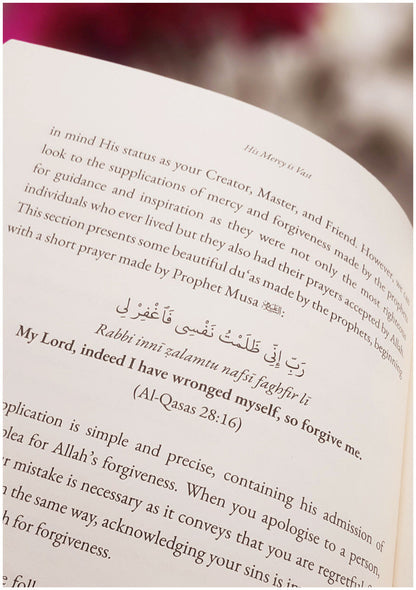 His Mercy is Vast
in mind His status as your Creator, Master, and Friend. However, we
look to the supplications of mercy and forgiveness made by the prophets
for guidance and inspiration as they were not only the most righteous
individuals who ever lived but they also had their prayers accepted by Allah.
This section presents some beautiful duʿas made by the prophets, beginning
with a short prayer made by Prophet Musa ﷺ:
رَبِّ إِنِّي ظَلَمْتُ نَفْسِى فَٱغْفِرْ لِى
Rabbi innī ẓalamtu nafsī faghfir lī
My Lord, indeed I have wronged myself, so forgive me.
(Al-Qasas 28:16)
pplication is simple and precise, containing his admission of
plea for Allah's forgiveness. When you apologise to a person,
r mistake is necessary as it conveys that you are regretful
n the same way, acknowledging your sins is
h for forgiveness.